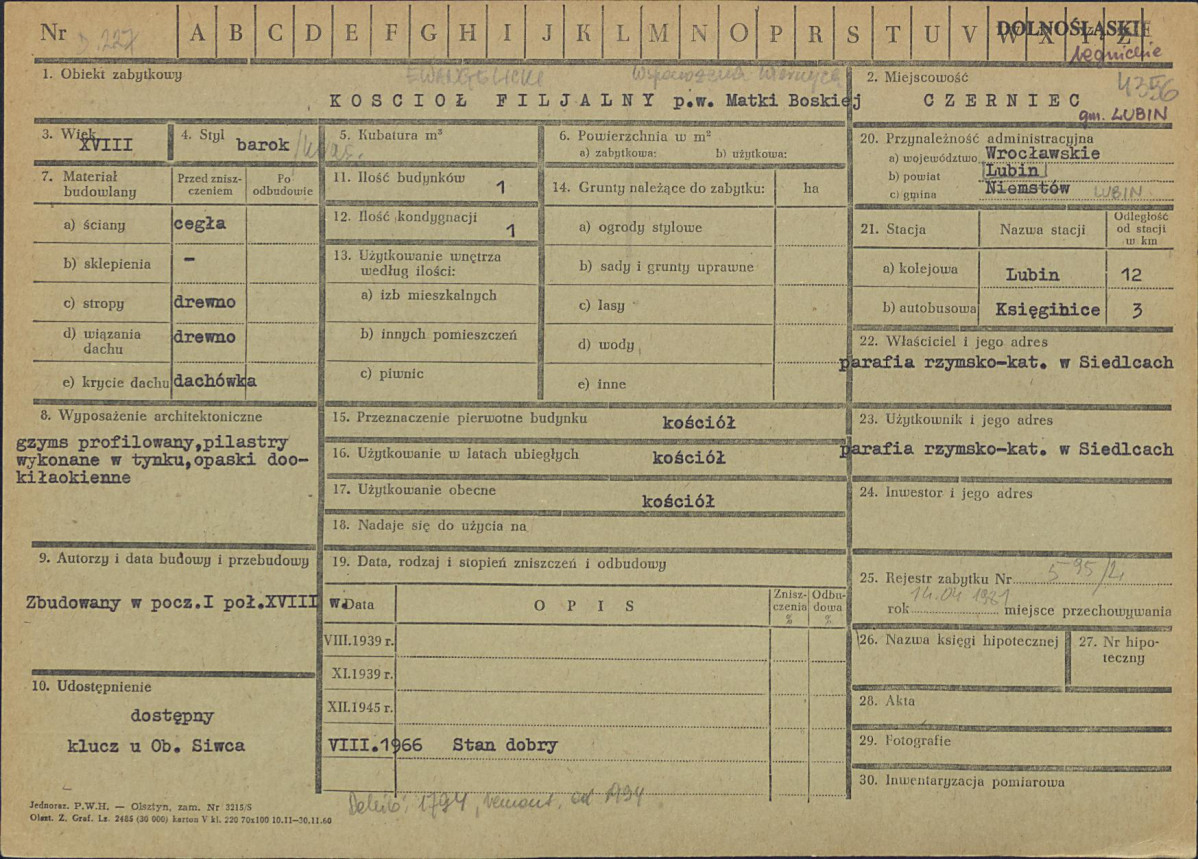 Nr A B C D E F G H I J K L M N O P R S T U V W X Y Z
DOLNOŚLĄSKIE
legnickie
1. Obiekt zabytkowy
EWANGELICKI
KOSCIOŁ FILJALNY p.w. Matki Boskiej
2. Miejscowość
4356
CZERNIEC
gm. LUBIN
3. Wiek
XVIII
4. Styl
barok
5. Kubatura m³
6. Powierzchnia w m²
a) zabytkowa: b) użytkowa:
7. Materiał budowlany
Przed zniszczeniem
Po odbudowie
a) ściany cegła
b) sklepienia –
c) stropy drewno
d) wiązania dachu drewno
e) krycie dachu dachówka
11. Ilość budynków 1
12. Ilość kondygnacji 1
13. Użytkowanie wnętrza
według ilości:
a) izb mieszkalnych
b) innych pomieszczeń
c) piwnic
14. Grunty należące do zabytku: ha
a) ogrody stylowe
b) sady i grunty uprawne
c) lasy
d) wody
e) inne
20. Przynależność administracyjna
a) województwo Wrocławskie
b) powiat Lubin
c) gmina Niemstów LUBIN
21. Stacja
Nazwa stacji
Odległość od stacji w km
a) kolejowa Lubin 12
b) autobusowa Księginice 3
22. Właściciel i jego adres
parafia rzymsko-kat. w Siedlcach
8. Wyposażenie architektoniczne
gzyms profilowany,pilastry
wykonane w tynku,opaski doo-
kiłaokienne
15. Przeznaczenie pierwotne budynku kościół
16. Użytkowanie w latach ubiegłych kościół
17. Użytkowanie obecne kościół
18. Nadaje się do użycia na
23. Użytkownik i jego adres
parafia rzymsko-kat. w Siedlcach
24. Inwestor i jego adres
9. Autorzy i data budowy i przebudowy
Zbudowany w pocz.I poł.XVIII w.
19. Data, rodzaj i stopień zniszczeń i odbudowy
Data
OPIS
Zniszczenia %
Odbudowa %
VIII.1939 r.
XI.1939 r.
XII.1945 r.
VIII.1966 Stan dobry
25. Rejestr zabytku Nr
rok 14.04 1981 miejsce przechowywania
26. Nazwa księgi hipotecznej
27. Nr hipoteczny
28. Akta
29. Fotografie
30. Inwentaryzacja pomiarowa
10. Udostępnienie
dostępny
klucz u Ob. Siwca
1794, remont.
Jednoraz. P.W.H. — Olsztyn, zam. Nr 3215/S
Olszt. Z. Graf. Lz. 2485 (30 000) karton V kl. 220 70x100 10.11—30.11.60